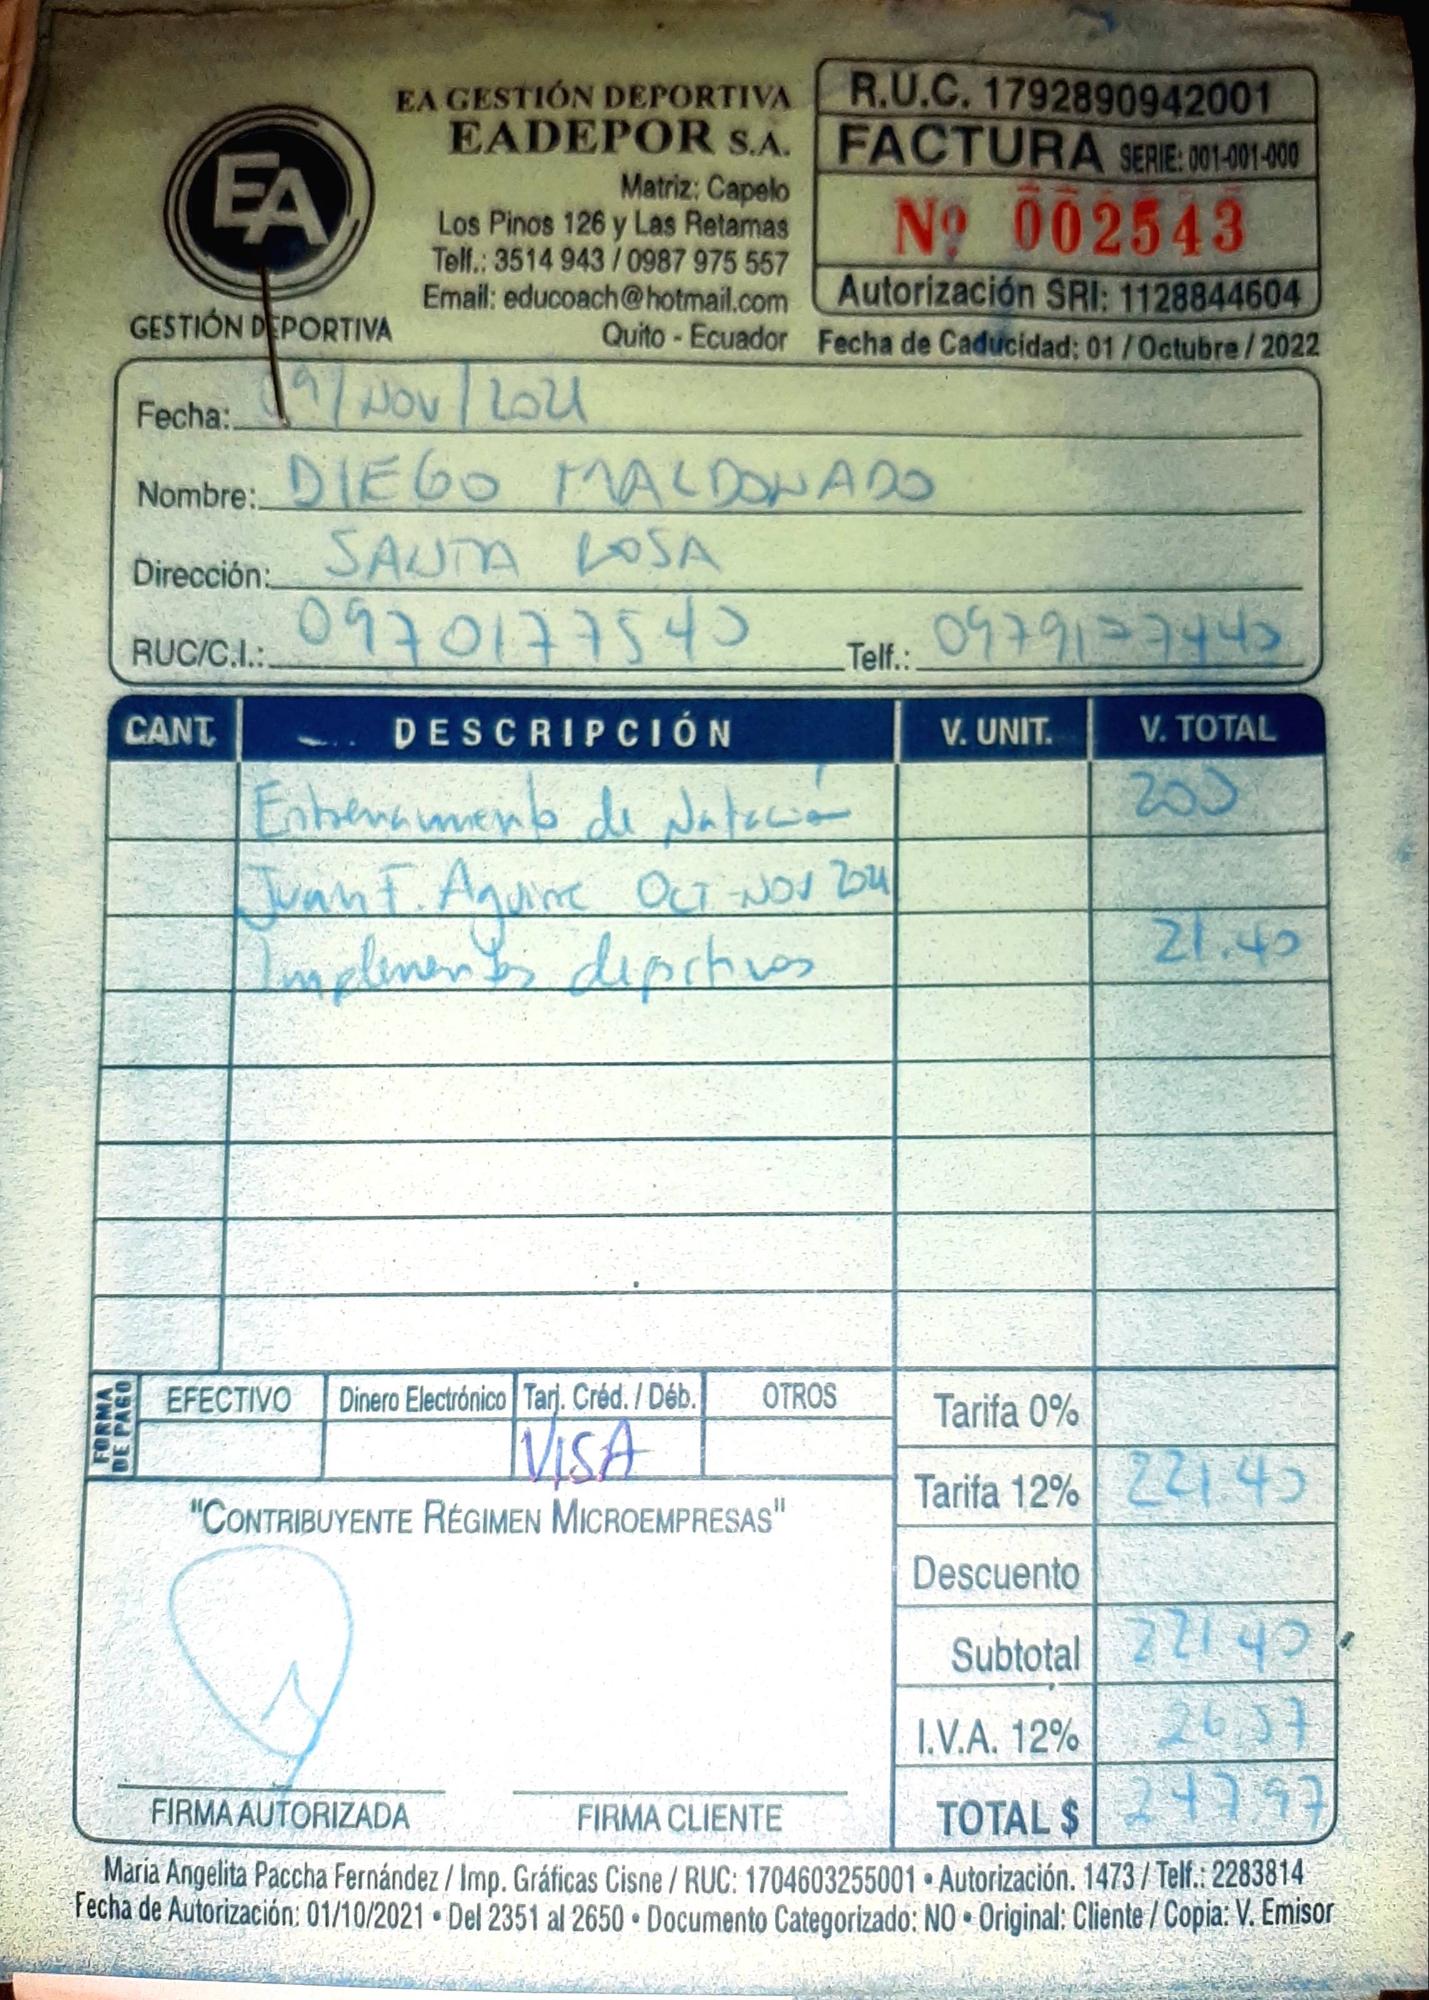 EA
GESTIÓN DEPORTIVA
EA GESTIÓN DEPORTIVA
EADEPOR S.A.
Matriz: Capelo
Los Pinos 126 y Las Retamas
Telf.: 3514 943 / 0987 975 557
Email: educoach@hotmail.com
Quito - Ecuador
R.U.C. 1792890942001
FACTURA SERIE: 001-001-000
Nº 002543
Autorización SRI: 1128844604
Fecha de Caducidad: 01 / Octubre / 2022
Fecha: 09/NOV/2021
Nombre: DIEGO MALDONADO
Dirección: SANTA ROSA
RUC/C.I.: 0970177540 Telf.:
CANT. DESCRIPCIÓN V. UNIT. V. TOTAL
Entrenamiento de Natación 200
Juan F. Aguirre OCT-NOV 2021
Implementos deportivos 21.40
FORMA DE PAGO
EFECTIVO Dinero Electrónico Tarj. Créd. / Déb. OTROS
VISA
Tarifa 0%
Tarifa 12% 221.40
Descuento
Subtotal 221.40
I.V.A. 12% 26.57
TOTAL $ 247.97
"CONTRIBUYENTE RÉGIMEN MICROEMPRESAS"
FIRMA AUTORIZADA FIRMA CLIENTE
María Angelita Paccha Fernández / Imp. Gráficas Cisne / RUC: 1704603255001 • Autorización. 1473 / Telf.: 2283814
Fecha de Autorización: 01/10/2021 • Del 2351 al 2650 • Documento Categorizado: NO • Original: Cliente / Copia: V. Emisor